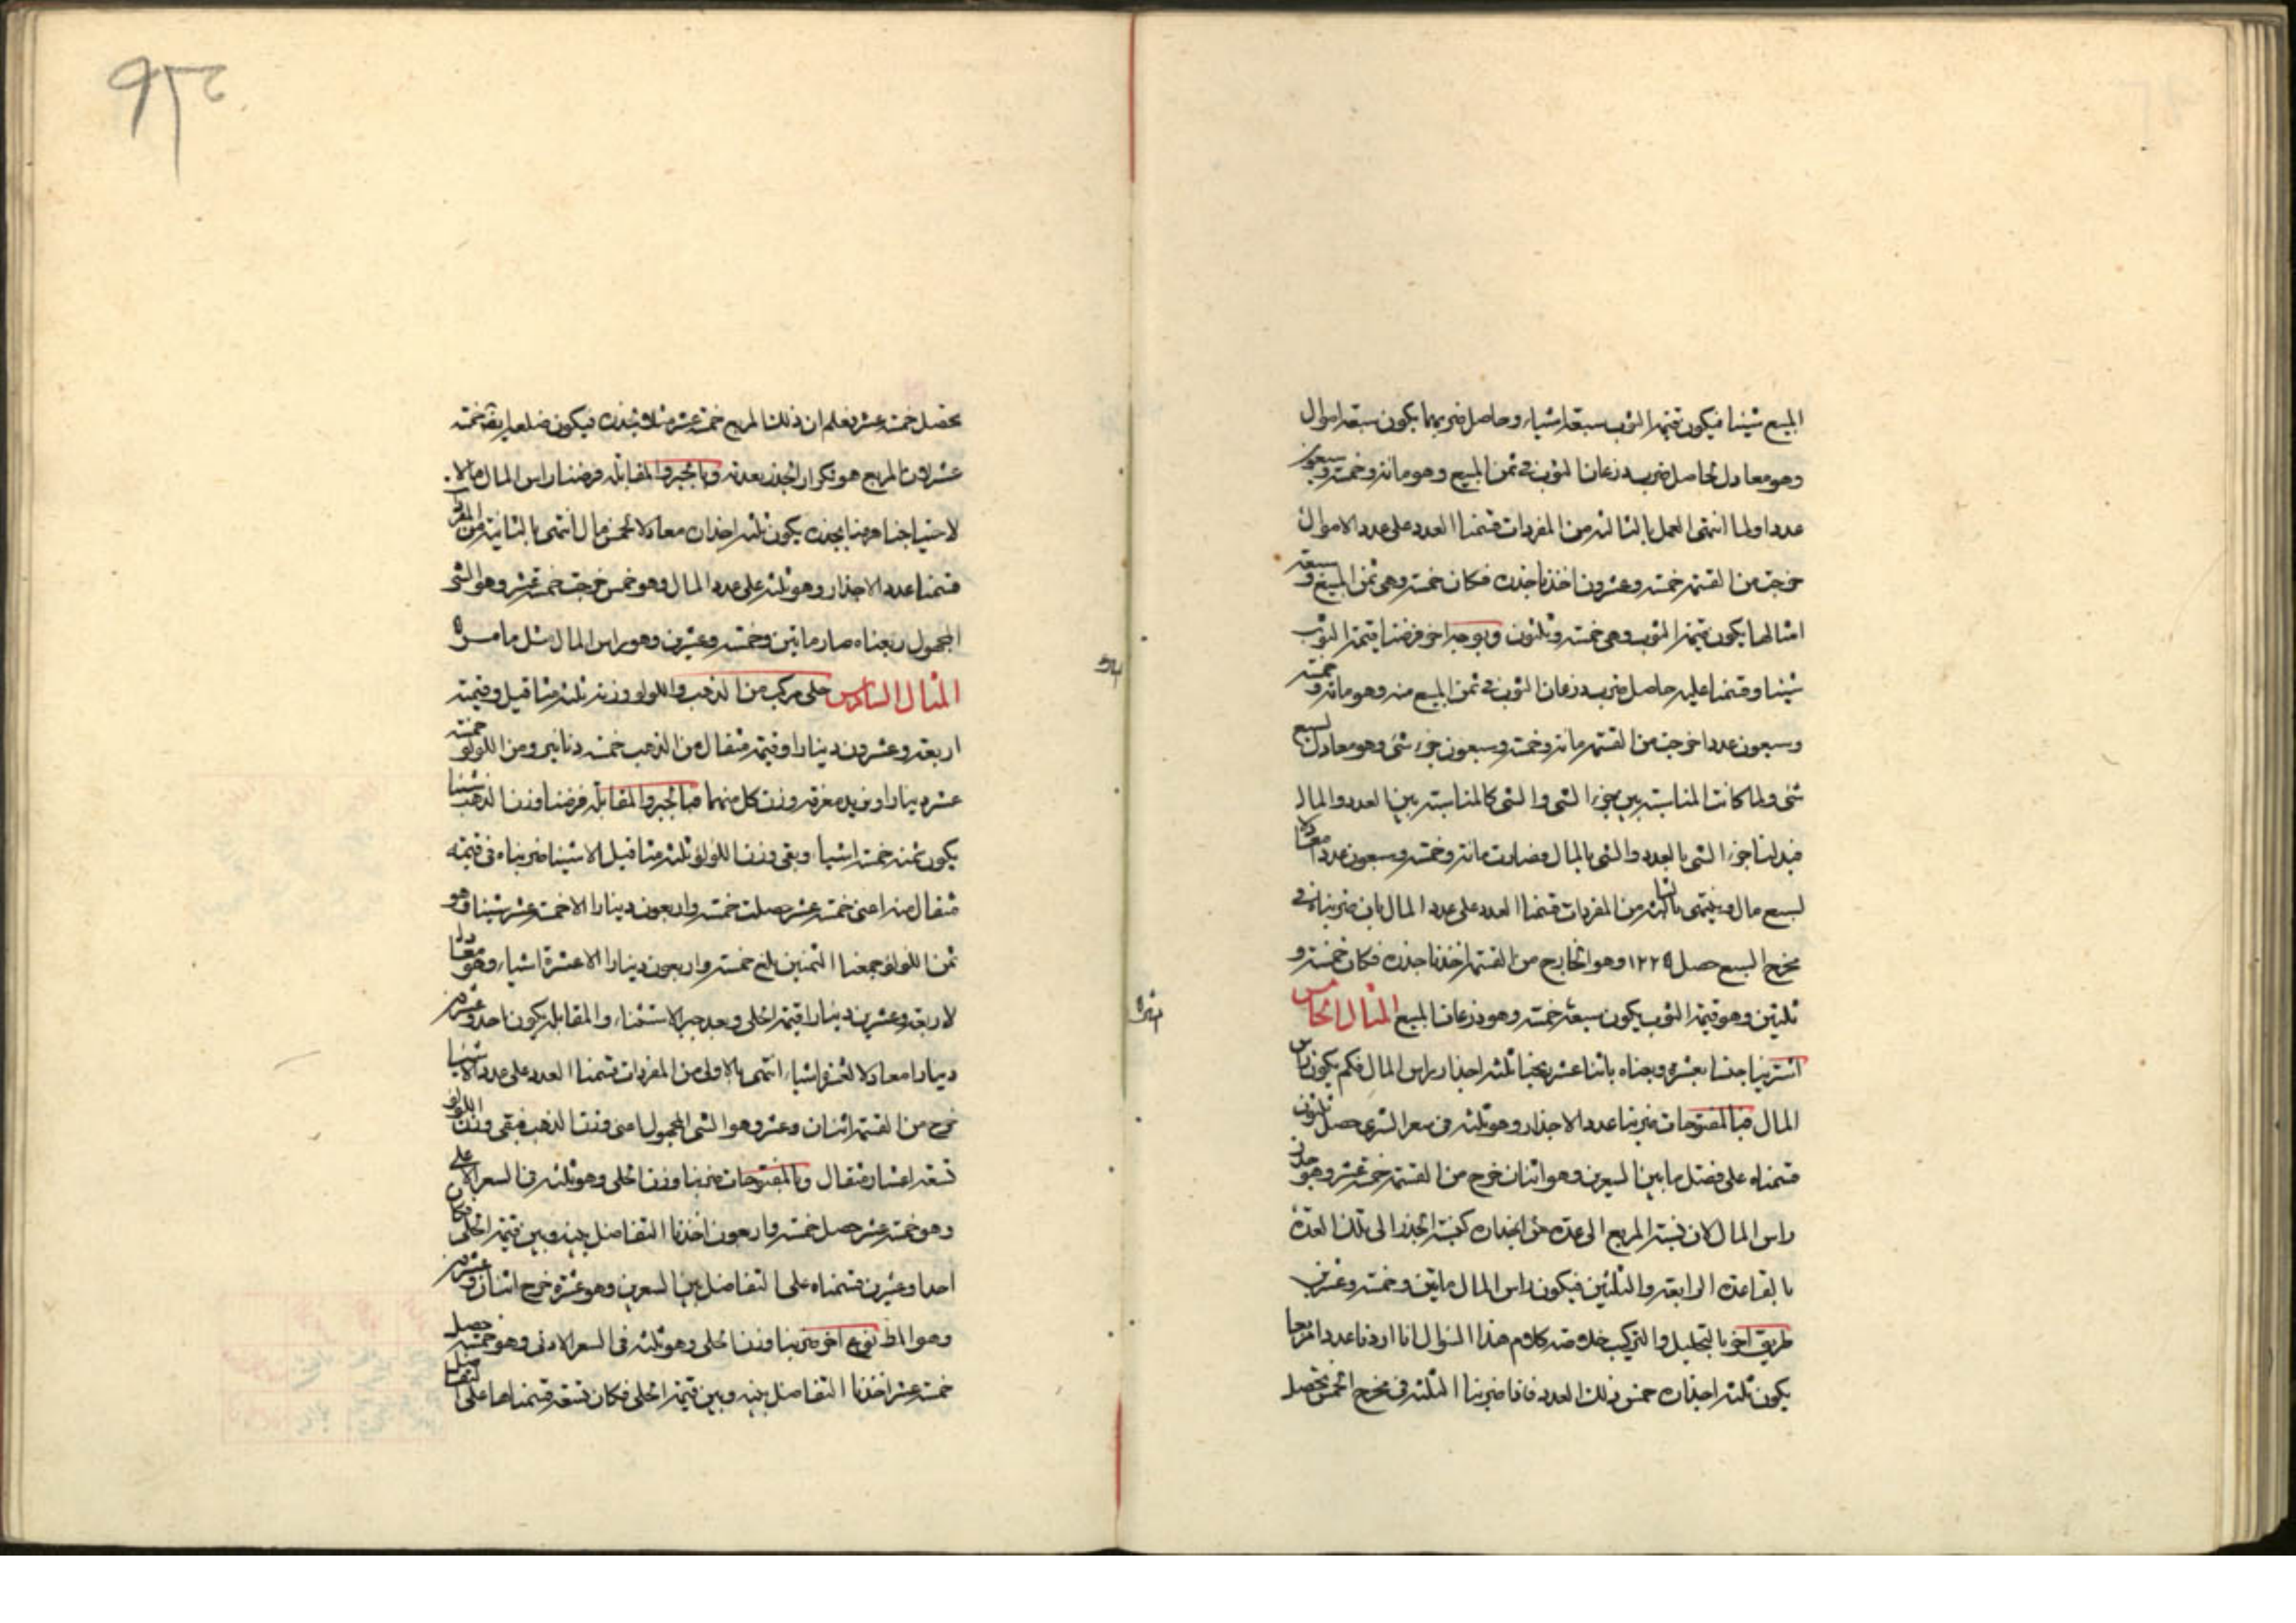 المبيع شيئا فيكون قيمة الثوب سبعة اشياء وحاصل ضربهما يكون سبعة اموال
وهو معادل لحاصل ضرب ذرعان الثوب في ثمن المبيع وهو مائة وخمسة وسبعون
عددا ولما انتهى العمل بالثالثة من المفردات قسمنا العدد على عدد الاموال
خرجت من القسمة خمسة وعشرون اخذنا جذره فكان خمسة وهي ثمن المبيع وسبعة
امثالها يكون قيمة الثوب وهي خمسة وثلثون وبوجه اخر فرضنا قيمة الثوب
شيئا وقسمنا عليه حاصل ضرب ذرعان الثوب في ثمن المبيع منه وهو مائة وخمسة
وسبعون عددا خرجت من القسمة مائة وخمسة وسبعون جزء شئ وهو معادل لسبع
شئ ولما كانت المناسبة بين جزء الشئ والشئ كالمناسبة بين العدد والمال
فبدلنا جزء الشئ بالعدد والشئ بالمال فصارت مائة وخمسة وسبعون عددا معادلا
لسبع مال وينتهي بالثالثة من المفردات قسمنا العدد على عدد المال بان ضربناه في
مخرج السبع حصل ١٢٢٥ وهو الخارج من القسمة اخذنا جذره فكان خمسة و
ثلثين وهو قيمة الثوب يكون سبعه خمسة وهو ذرعان المبيع المثال الخامس
اشترينا جنسا بعشرة وبعناه باثنا عشر ربحنا ثلثة اجذار راس المال فكم يكون راس
المال فبالمفتوحات ضربنا عدد الاجذار وهو ثلثة في سعر الشرى حصل ثلثون
قسمناه على فضل ما بين السعرين وهو اثنان خرج من القسمة خمسة عشر وهو جذر
راس المال لان نسبة المربع الى عدة من اجذاره كنسبة الجذر الى تلك العدة
بالقاعدة الرابعة والثلثين فيكون راس المال مائتين وخمسة وعشرين
طريق اخر بالتحليل والتركيب خلاصة كلام هذا السؤال انا اردنا عددا مربعا
يكون ثلثة اجذاره خمس ذلك العدد فاذا ضربنا الثلثة في مخرج الخمس تحصل
٩٢
يحصل خمسة عشر فعلم ان ذلك المربع خمسة عشر مثلا لجذره فيكون ضلعه ايضا خمسة
عشر لان المربع هو تكرار الجذر بعدته وبالجبر والمقابلة فرضنا راس المال مالا
لاحتياجنا هنا بجذره يكون ثلثة اجذاره معادلا لخمس مال انتهى بالثانية من المفردات
قسمنا عدد الاجذار وهو ثلثة على عدد المال وهو خمس خرجت خمسة عشر وهو الشئ
المجهول ربعناه صار مائتين وخمسة وعشرين وهو راس المال مثل ما مر
المثال السادس حلى مركب من الذهب واللؤلؤ وزنه ثلثة مثاقيل وقيمته
اربعة وعشرون دينارا وقيمة مثقال من الذهب خمسة دنانير ومن اللؤلؤ خمسة
عشر دينارا ونريد معرفة وزن كل منهما فبالجبر والمقابلة فرضنا وزن الذهب شيئا
يكون ثمنه خمسة اشياء وبقى وزن اللؤلؤ ثلثة مثاقيل الا شيئا ضربناه في قيمة
مثقال منه اعني خمسة عشر حصلت خمسة واربعون دينارا الا خمسة عشر شيئا وهو
ثمن اللؤلؤ جمعنا الثمنين بلغ خمسة واربعون دينارا الا عشرة اشياء وهو معادل
لاربعة وعشرين دينارا قيمة الحلى وبعد جبر الاستثناء والمقابلة يكون احد وعشرين
دينارا معادلا لعشرة اشياء انتهى بالاولى من المفردات قسمنا العدد على عدد الاشياء
خرج من القسمة اثنان وعشر وهو الشئ المجهول اعني وزن الذهب فبقى وزن اللؤلؤ
تسعة اعشار مثقال وبالمفتوحات ضربنا وزن الحلى وهو ثلثة في السعر الاعلى
وهو خمسة عشر حصل خمسة واربعون اخذنا التفاضل بينه وبين قيمة الحلى فكان
احدا وعشرين قسمناه على التفاضل بين السعرين وهو عشرة خرج اثنان وعشر
وهو المط نوع اخر ضربنا وزن الحلى وهو ثلثة في السعر الادنى وهو خمسة حصل
خمسة عشر اخذنا التفاضل بينه وبين قيمة الحلى فكان تسعة قسمناها على التفاضل